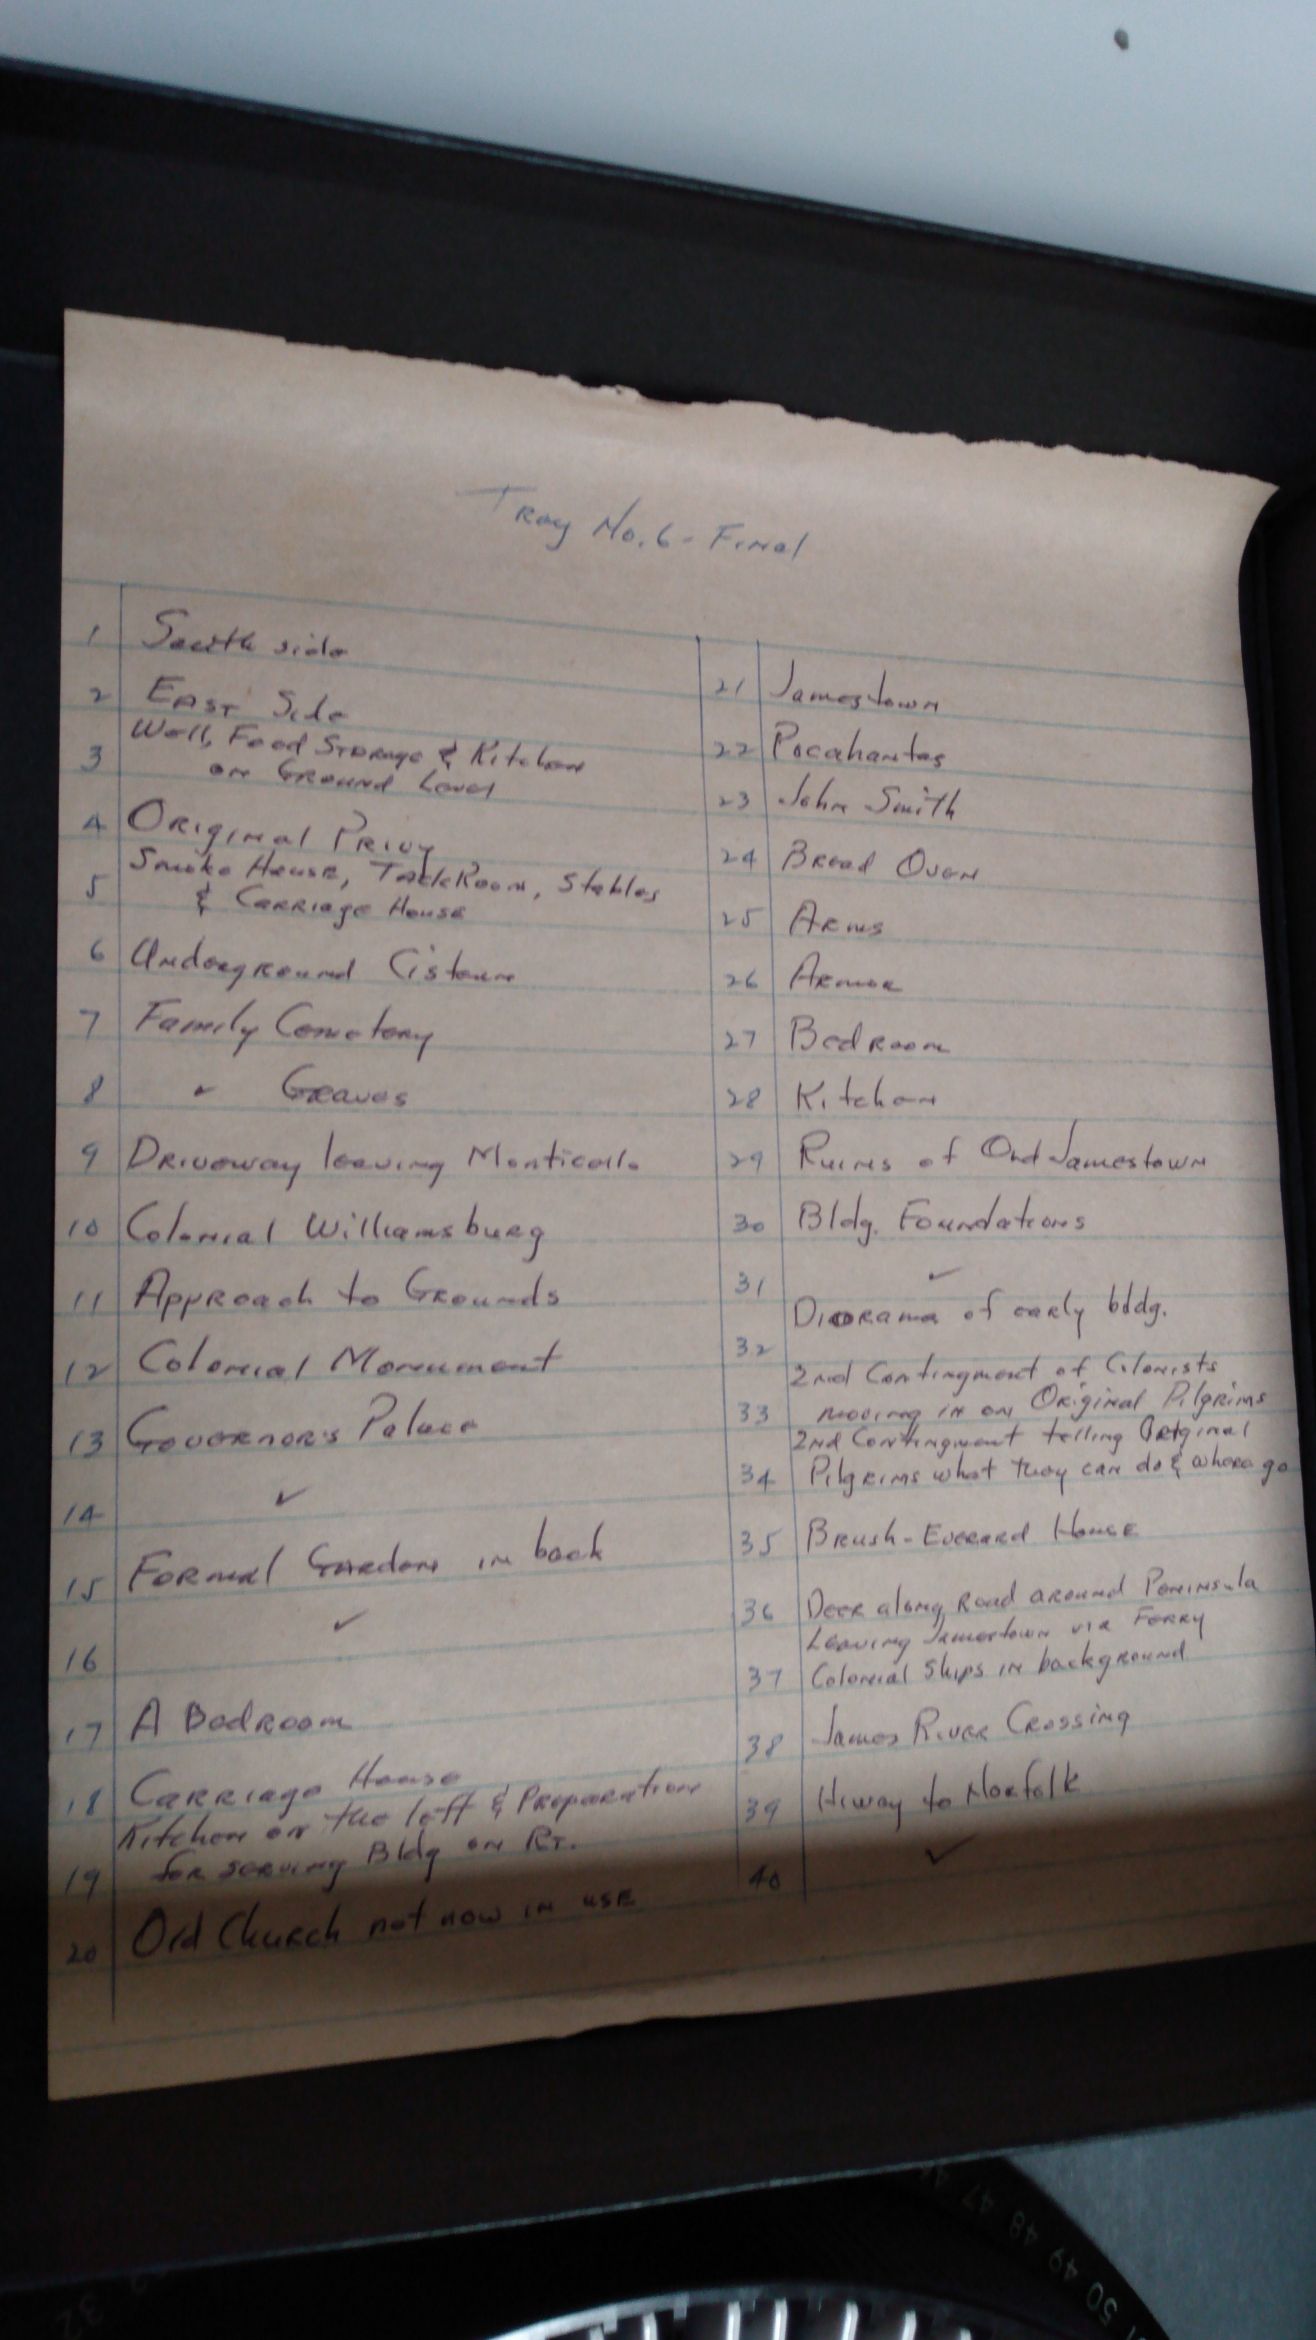 Tray No. 6 - Final
1 South side
2 East Side
3 Well, Food Storage & Kitchen
on Ground Level
4 Original Privy
5 Smoke House, Tack Room, Stables
& Carriage House
6 Underground Cistern
7 Family Cemetery
8 ✓ Graves
9 Driveway leaving Monticello
10 Colonial Williamsburg
11 Approach to Grounds
12 Colonial Monument
13 Governor's Palace
14 ✓
15 Formal Garden in back
16 ✓
17 A Bedroom
18 Carriage House
19 Kitchen on the left & Preparation
for serving Bldg on Rt.
20 Old Church not now in use
21 Jamestown
22 Pocahantas
23 John Smith
24 Bread Oven
25 Arms
26 Armor
27 Bedroom
28 Kitchen
29 Ruins of Old Jamestown
30 Bldg. Foundations
31 ✓
32 Diorama of early bldg.
33 2nd Contingment of Colonists
moving in on Original Pilgrims
34 2nd Contingment telling Original
Pilgrims what they can do & where go
35 Brush-Everard House
36 Deer along Road around Peninsula
37 Leaving Jamestown via Ferry
Colonial Ships in background
38 James River Crossing
39 Hiway to Norfolk
40 ✓
47 48 49 50 51
32